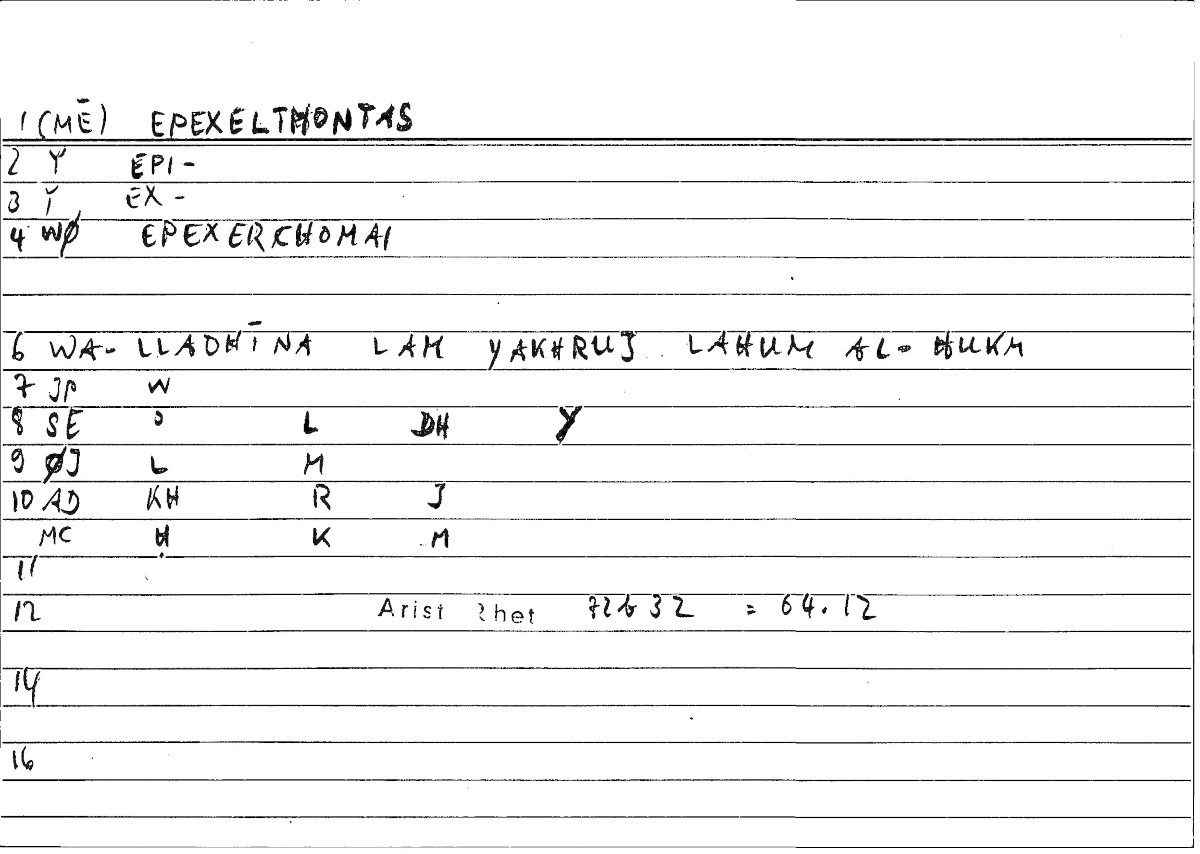 1 (MĒ) EPEXELTHONTAS
2 Y EPI-
3 Y EX-
4 WØ EPEXERCHOMAI
6 WA- LLADHĪNA LAM YAKHRUJ LAHUM AL- ḤUKM
7 JP W
8 SE ' L DH Y
9 ØJ L M
10 AD KH R J
MC Ḥ K M
11
12 Arist Rhet 72b32 = 64.12
14
16